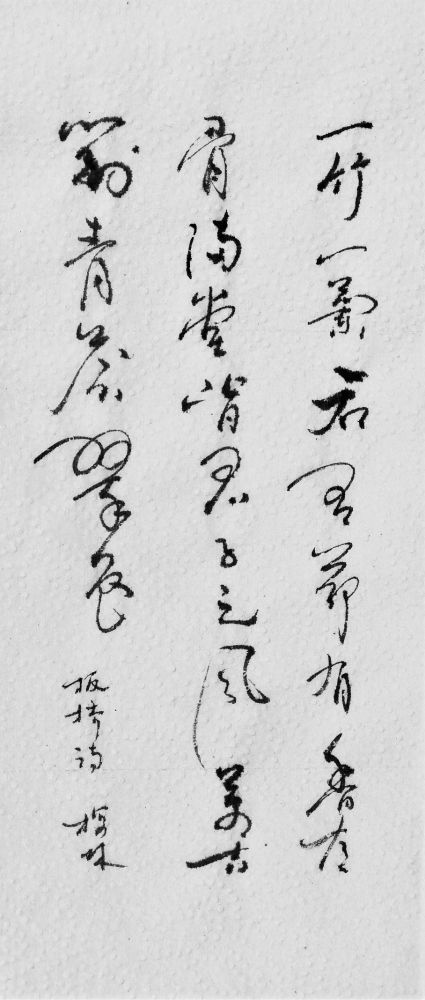 一竹一蘭一石有節有香有
骨滿堂皆君子之風萬古
對青蒼翠色
板橋詩